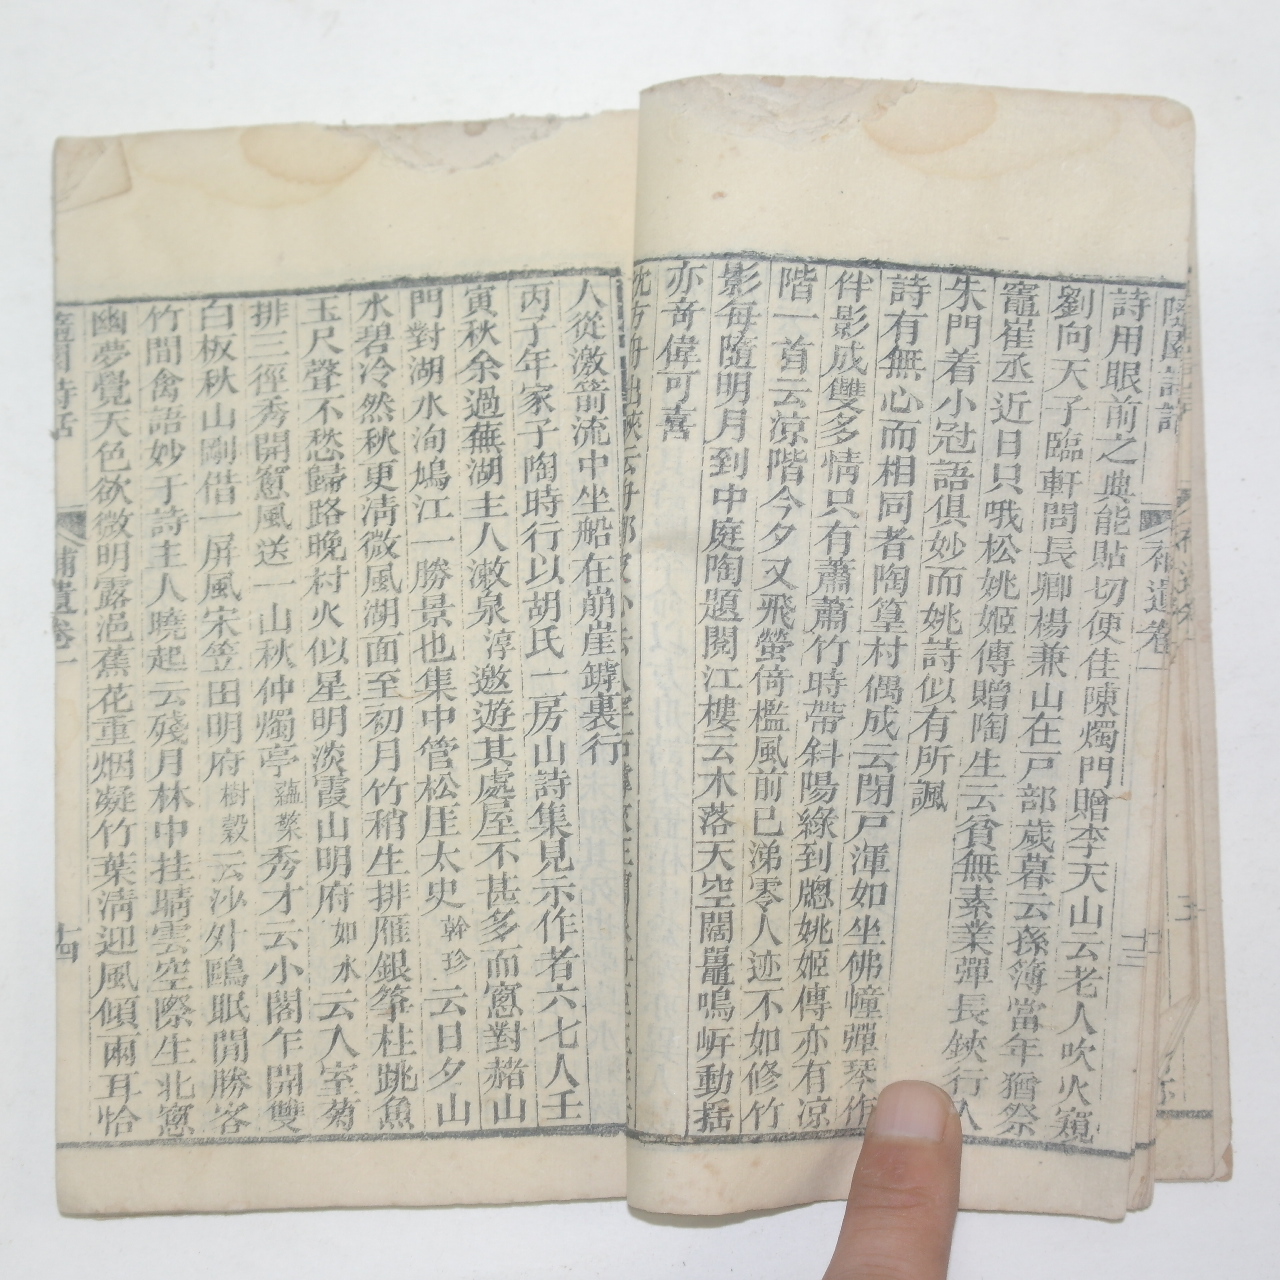 隨園詩話 補遺卷一
詩用眼前之典能貼切便佳陳燭門贈李天山云老人吹火窺
劉向天子臨軒問長卿楊兼山在戸部歲暮云孫簿當年猶祭
竈崔丞近日只哦松姚姬傳贈陶生云貧無素業彈長鋏行入
朱門着小冠語俱妙而姚詩似有所諷
詩有無心而相同者陶篁村偶成云閉戸渾如坐佛幢彈琴作
伴影成雙多情只有蕭蕭竹時帶斜陽綠到牕姚姬傳亦有凉
階一首云凉階今夕又飛螢倚檻風前已涕零人迹不如修竹
影每隨明月到中庭陶題閱江樓云木落天空闊鼉鳴岍動揺
亦竒偉可喜
人從激箭流中坐船在崩崖罅裏行
丙子年家子陶時行以胡氏一房山詩集見示作者六七人壬
寅秋余過蕪湖主人漱泉淳邀遊其處屋不甚多而窻對赭山
門對湖水洵鳩江一勝景也集中管松厓太史幹珍云日夕山
水碧冷然秋更清微風湖面至初月竹稍生排雁銀筝柱跳魚
玉尺聲不愁歸路晚村火似星明淡霞山明府如水云入室菊
排三徑秀開窻風送一山秋仲燭亭蘊檠秀才云小閣乍開雙
白板秋山剛借一屏風宋笠田明府樹穀云沙外鷗眠開勝客
竹間禽語妙于詩主人曉起云殘月林中挂晴雲空際生北窻
幽夢覺天色欲微明露浥蕉花重烟凝竹葉清迎風傾兩耳恰
隨園詩話 補遺卷一 十四